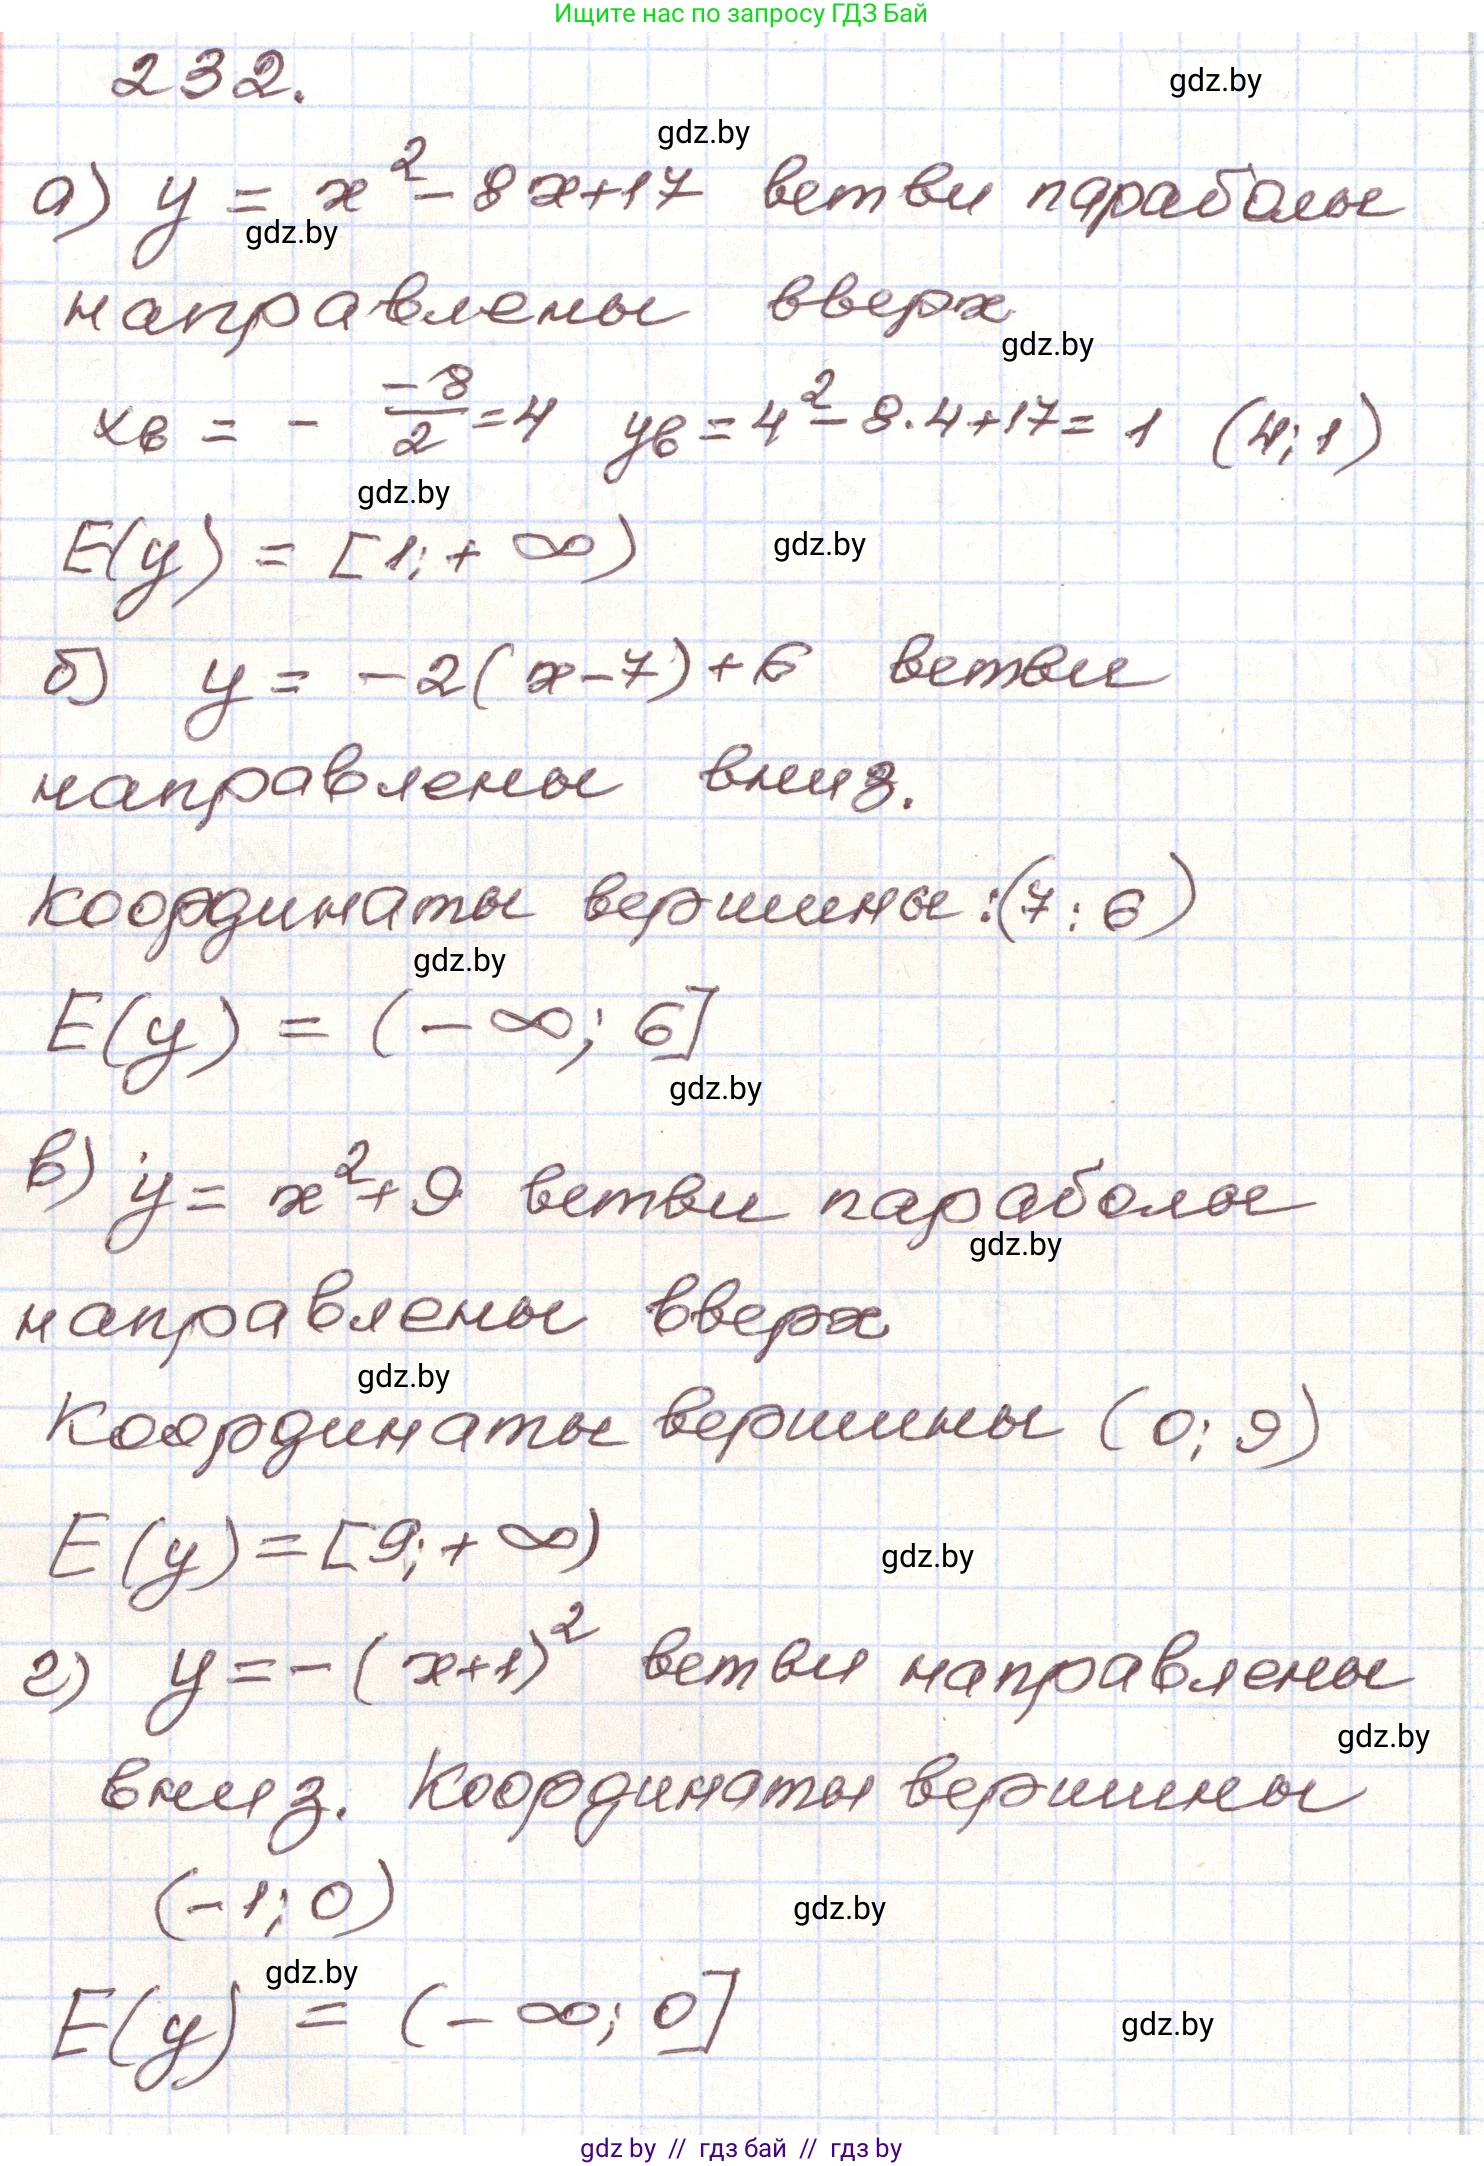 Ищите нас по запросу ГДЗ Бай
232.
gdz.by
gdz.by
а) y = x² - 8x+17 ветви параболы
gdz.by
направлены вверх
gdz.by
xв = - -8/2 = 4 yв = 4² - 8·4+17 = 1 (4; 1)
gdz.by
E(y) = [1; + ∞)
gdz.by
б) y = -2(x-7)+6 ветви
направлены вниз.
координаты вершины: (7; 6)
gdz.by
E(y) = (-∞; 6]
gdz.by
в) y = x²+9 ветви параболы
gdz.by
направлены вверх
gdz.by
Координаты вершины (0; 9)
E(y) = [9; + ∞)
gdz.by
г) y = -(x+1)² ветви направлены
gdz.by
вниз. Координаты вершины
(-1; 0)
gdz.by
gdz.by
E(y) = (-∞; 0]
gdz.by
gdz by // гдз бай // гдз by